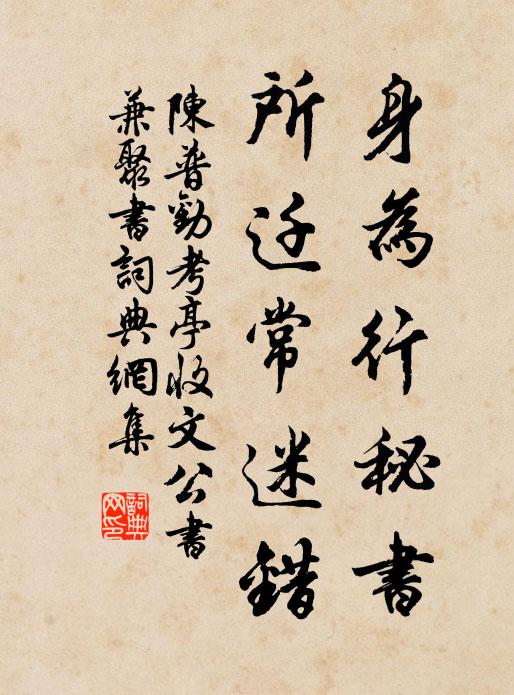 身為行秘書
所迂常迷錯
陳普勸考亭收文公書
兼聚書詞典網集
詞典网印